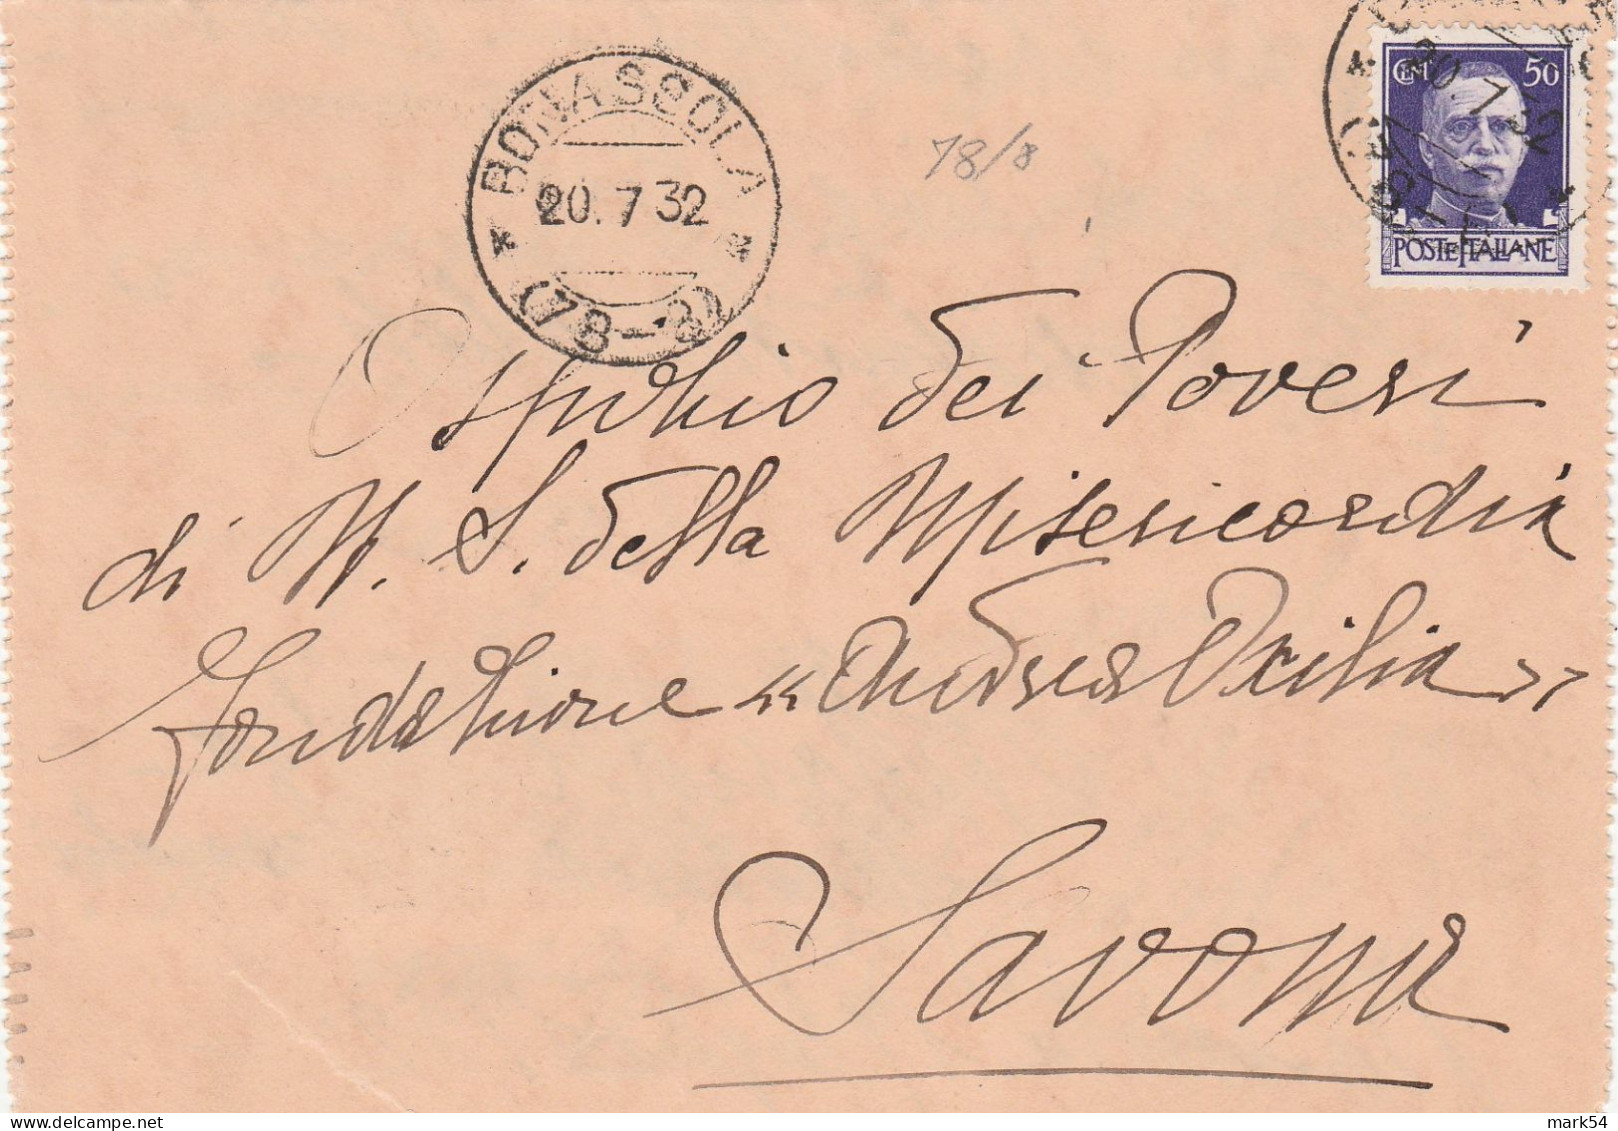 BONASSOLA
20.7 32
(78-8)
78/8
CENT 50
20.7.32
POSTE ITALIANE
Ospizio dei Poveri
di N. S. della Misericordia
fondazione «Andrea Oxilia»
Savona
mark54